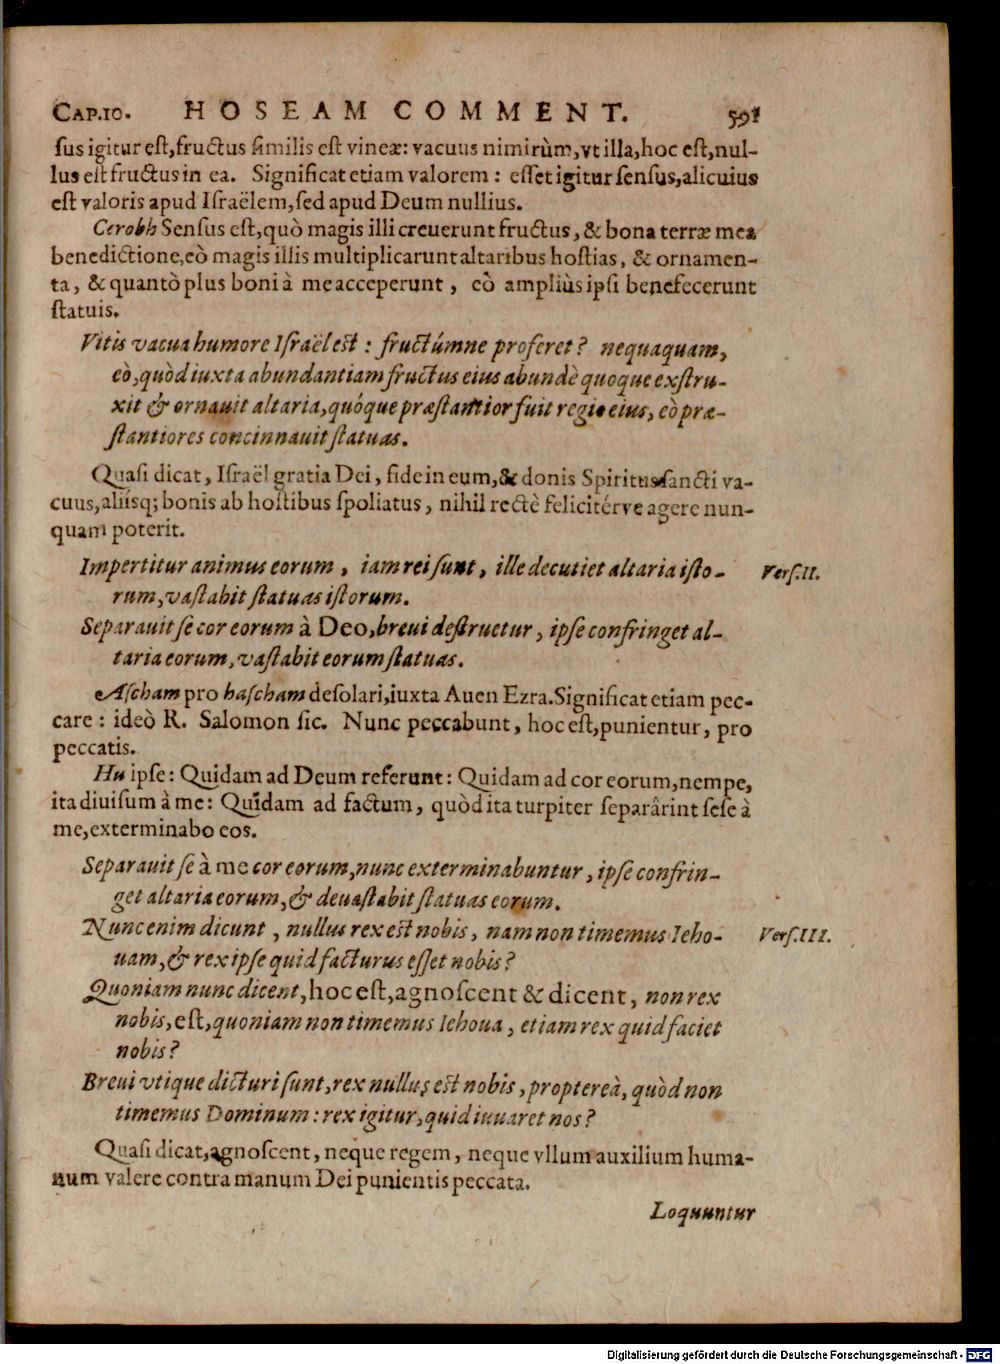 CAP.10. HOSEAM COMMENT. 591
sus igitur est, fructus similis est vineæ: vacuus nimirùm, vt illa, hoc est, nul-
lus est fructus in ea. Significat etiam valorem: esset igitur sensus, alicuius
est valoris apud Israëlem, sed apud Deum nullius.
Cerobh Sensus est, quò magis illi creuerunt fructus, & bona terræ mea
benedictione, eò magis illis multiplicarunt altaribus hostias, & ornamen-
ta, & quantò plus boni à me acceperunt, eò ampliùs ipsi benefecerunt
statuis.
Vitis vacua humore Israël est: fructúmne proferet? nequaquam,
eò, quòd iuxta abundantiam fructus eius abundè quoque exstru-
xit & ornauit altaria, quóque præstantior fuit regio eius, eò præ-
stantiores concinnauit statuas.
Quasi dicat, Israël gratia Dei, fide in eum, & donis Spiritus sancti va-
cuus, aliísq; bonis ab hostibus spoliatus, nihil rectè felicitérve agere nun-
quam poterit.
Impertitur animus eorum, iam rei sunt, ille decutiet altaria isto- Vers.II.
rum, vastabit statuas istorum.
Separauit se cor eorum à Deo, breui destruetur, ipse confringet al-
taria eorum, vastabit eorum statuas.
Ascham pro hascham desolari, iuxta Auen Ezra. Significat etiam pec-
care: ideò R. Salomon sic. Nunc peccabunt, hoc est, punientur, pro
peccatis.
Hu ipse: Quidam ad Deum referunt: Quidam ad cor eorum, nempe,
ita diuisum à me: Quidam ad factum, quòd ita turpiter separârint sese à
me, exterminabo eos.
Separauit se à me cor eorum, nunc exterminabuntur, ipse confrin-
get altaria eorum, & deuastabit statuas eorum.
Nunc enim dicunt, nullus rex est nobis, nam non timemus Ieho- Vers.III.
uam, & rex ipse quid facturus esset nobis?
Quoniam nunc dicent, hoc est, agnoscent & dicent, non rex
nobis, est, quoniam non timemus Iehoua, etiam rex quid faciet
nobis?
Breui vtique dicturi sunt, rex nullus est nobis, proptereà, quòd non
timemus Dominum: rex igitur, quid iuuaret nos?
Quasi dicat, agnoscent, neque regem, neque vllum auxilium huma-
num valere contra manum Dei punientis peccata.
Loquuntur
Digitalisierung gefördert durch die Deutsche Forschungsgemeinschaft - DFG